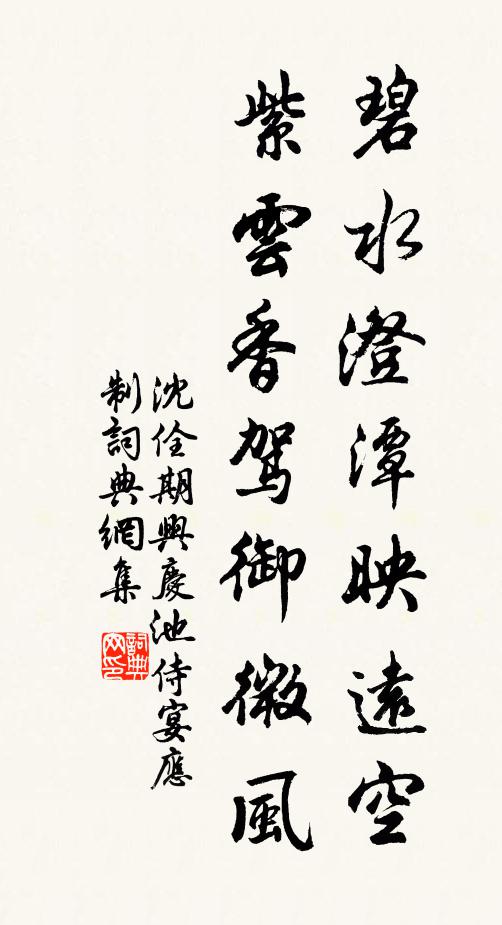 碧水澄潭映遠空
紫雲香駕御微風
沈佺期興慶池侍宴應
制詞典網集
詞典
网印